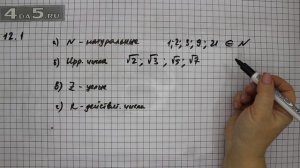 4da5.ru
12.1
а) N - натуральные 1; 2; 3; 9; 21 ∈ N
б) Ирр. числа √2; √3; √5; √7
в) Z - целые
г) R - действит. числа